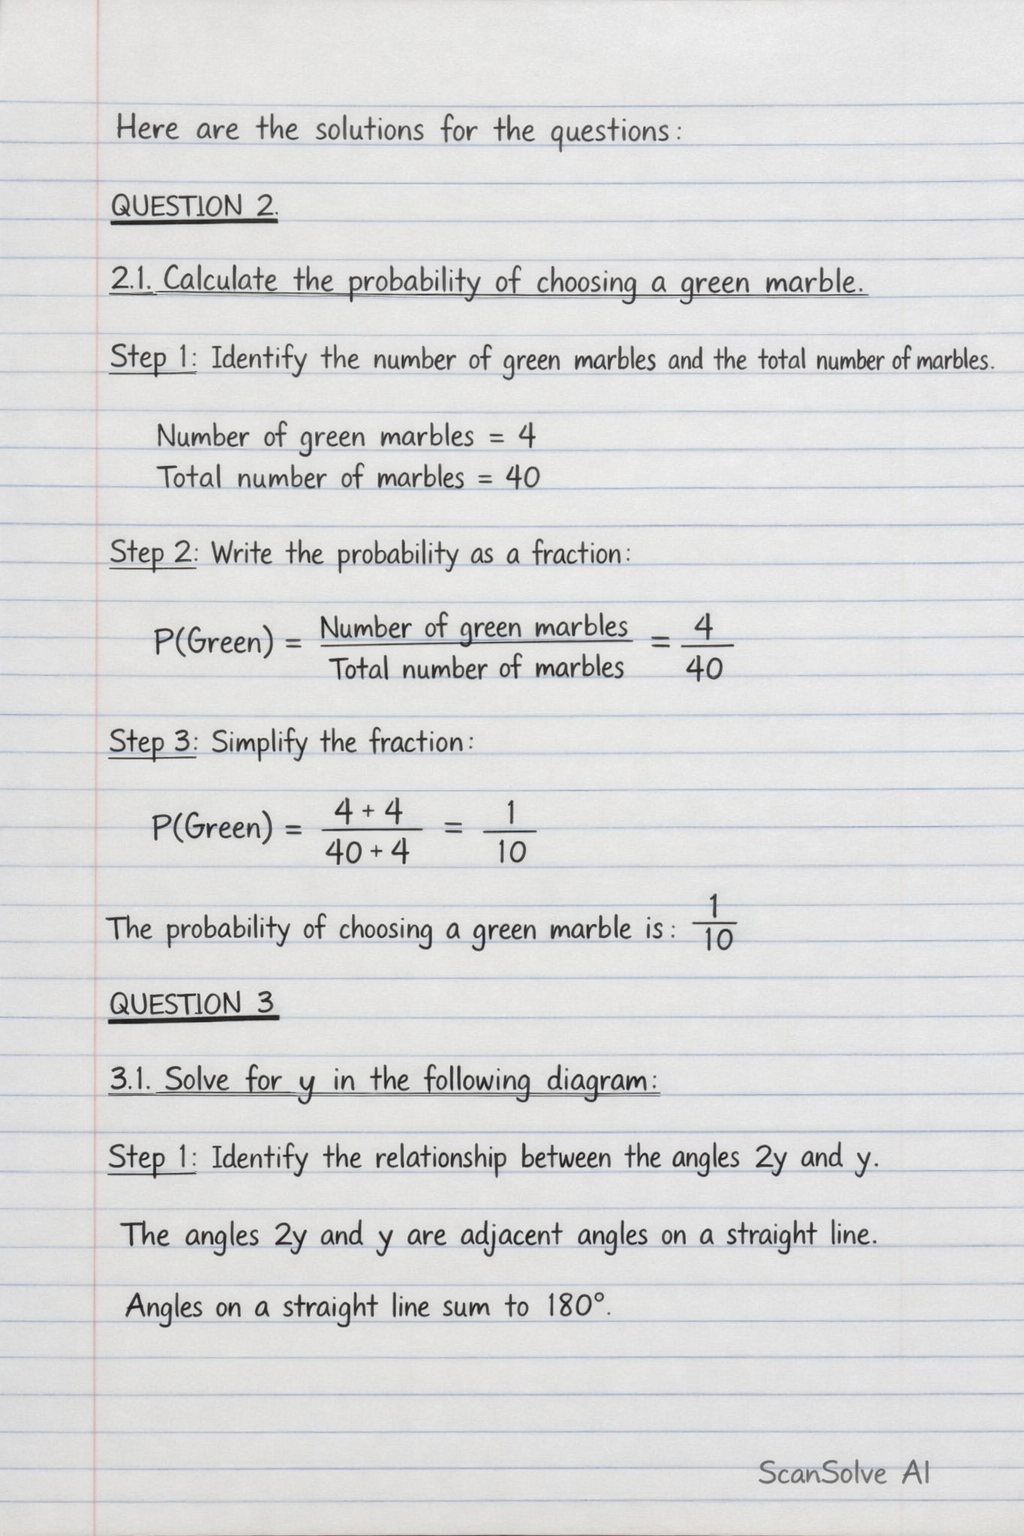 Here are the solutions for the questions:
QUESTION 2.
2.1. Calculate the probability of choosing a green marble.
Step 1: Identify the number of green marbles and the total number of marbles.
Number of green marbles = 4
Total number of marbles = 40
Step 2: Write the probability as a fraction:
P(Green) = Number of green marbles / Total number of marbles = 4/40
Step 3: Simplify the fraction:
P(Green) = 4 + 4 / 40 + 4 = 1/10
The probability of choosing a green marble is: 1/10
QUESTION 3
3.1. Solve for y in the following diagram:
Step 1: Identify the relationship between the angles 2y and y.
The angles 2y and y are adjacent angles on a straight line.
Angles on a straight line sum to 180°.
ScanSolve AI